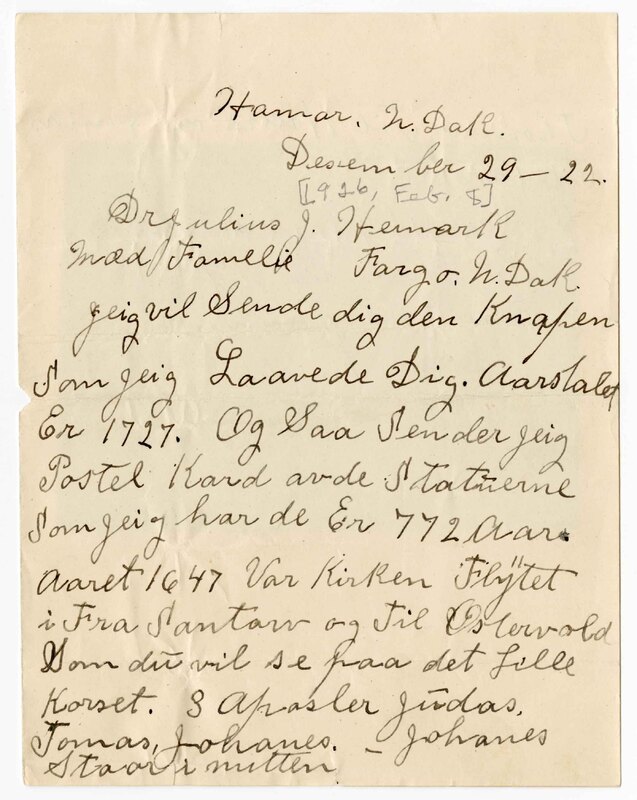 Hamar. N. Dak.
Desember 29 – 22.
[1926, Feb. 8]
Dr Julius J. Heimark
Mæd Famelie Fargo. N. Dak.
jeig vil Sende dig den Knapen
Som jeig Laavede Dig. Aarstalet
Er 1727. Og Saa Sender jeig
Postel Kard av de Statuerne
Som jeig har de Er 772 Aar.
Aaret 1647 Var Kirken Flyttet
i Fra Santarv og Til Østervold
Som du vil se paa det Lille
Korset. 3 Aposler Judas.
Tomas, Johanes. – Johanes
Staar i mitten